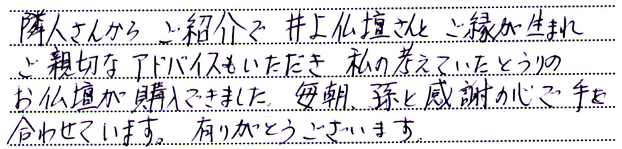 隣人さんから ご紹介で 井上仏壇さんと ご縁が生まれ
ご親切なアドバイスもいただき 私の考えていたとうりの
お仏壇が購入できました。毎朝、孫と感謝の心で手を
合わせています。有りがとうございます。